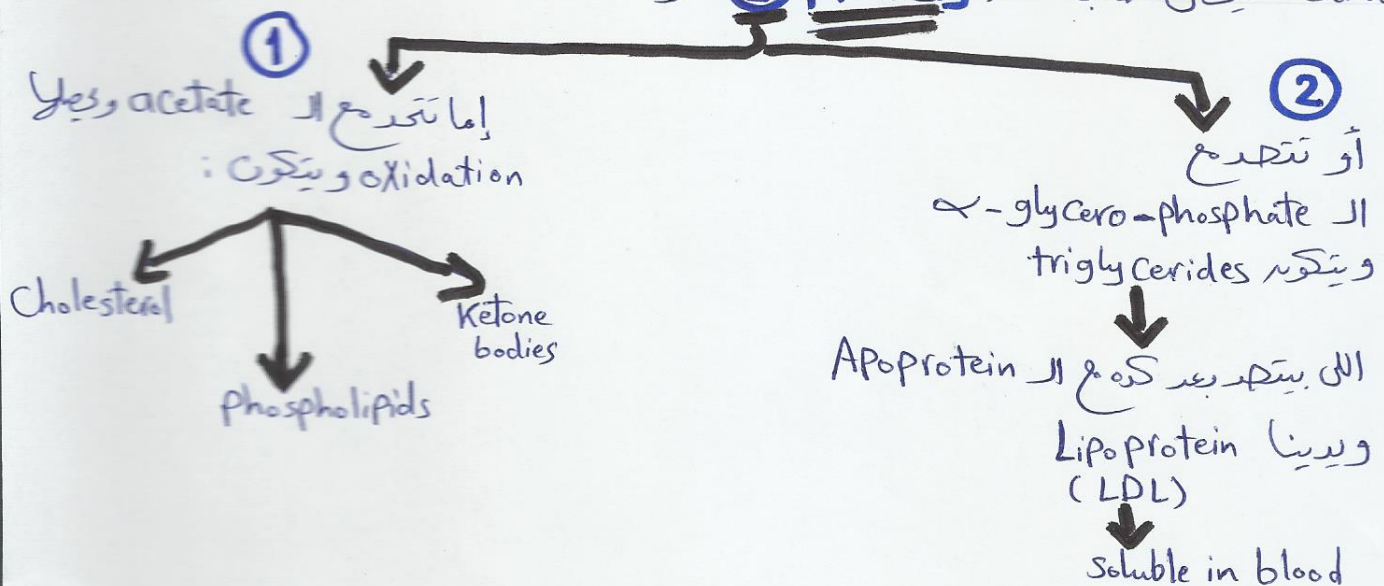 ①
إما تتحد مع الـ acetate ويحصلها
oxidation ويتكون :
Cholesterol
Phospholipids
Ketone
bodies
②
أو تتحد مع
الـ α-glycero-phosphate
ويتكون triglycerides
اللى بيتحد بعد كده مع الـ Apoprotein
ويدينا Lipoprotein
(LDL)
soluble in blood